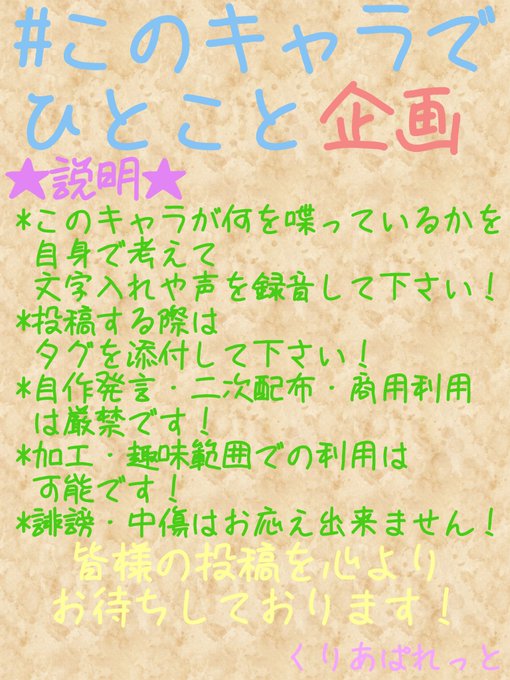 #このキャラで
ひとこと企画
★説明★
*このキャラが何を喋っているかを
自身で考えて
文字入れや声を録音して下さい！
*投稿する際は
タグを添付して下さい！
*自作発言・二次配布・商用利用
は厳禁です！
*加工・趣味範囲での利用は
可能です！
*誹謗・中傷はお応え出来ません！
皆様の投稿を心より
お待ちしております！
くりあぱれっと